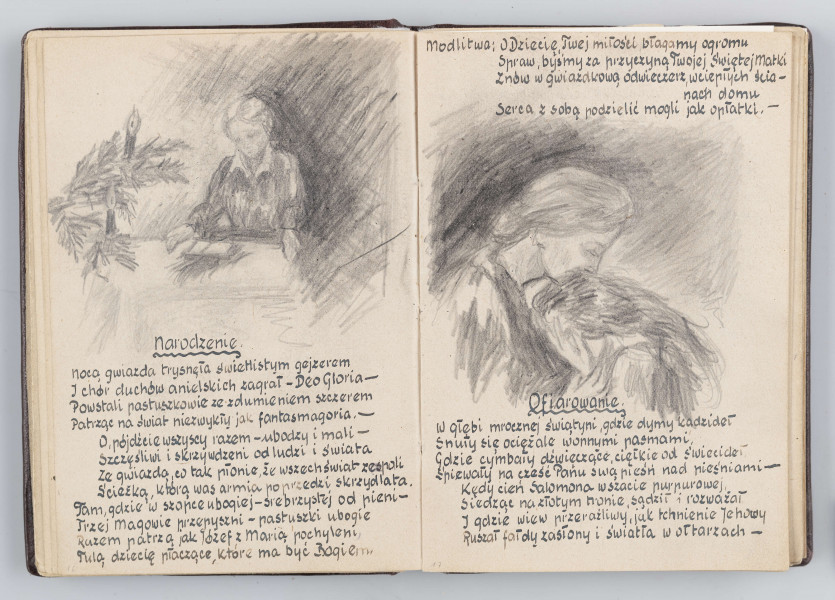 Narodzenie.
Nocą gwiazda trysnęła świetlistym gejzerem
I chór duchów anielskich zagrał – Deo Gloria –
Powstali pastuszkowie ze zdumieniem szczerem
Patrząc na świat niezwykły jak fantasmagoria. –
O, pójdźcie wszyscy razem – ubodzy i mali –
Szczęśliwi i skrzywdzeni od ludzi i świata
Ze gwiazdą, co tak płonie, że wszechświat zespoli
Ścieżka, którą was armia poprzedzi skrzydlata.
Tam, gdzie w szopce ubogiej – srebrzystej od pieni –
Trzej Magowie przepyszni – pastuszki ubogie
Razem patrzą jak Józef z Marią pochyleni,
Tulą dziecię płaczące, które ma być Bogiem
Modlitwa; O Dziecię, Twej miłości błagamy ogromu
Spraw, byśmy za przyczyną Twojej Świętej Matki
Znów w gwiazdkową odwieczerz, w ciepłych ścia-
nach domu
Serca z sobą podzielić mogli jak opłatki. –
Ofiarowanie.
W głębi mrocznej świątyni, gdzie dymy kadzideł
Snuły się ociężale wonnymi pasmami,
Gdzie cymbały dźwięczące, ciężkie od świecideł
Śpiewały na cześć Panu swą pieśń nad pieśniami –
Kędy cień Salomona w szacie purpurowej,
Siedząc na złotym tronie, sądził i rozważał
I gdzie wiew przeraźliwy, jak tchnienie Jehowy
Ruszał fałdy zasłony i światła w ołtarzach –